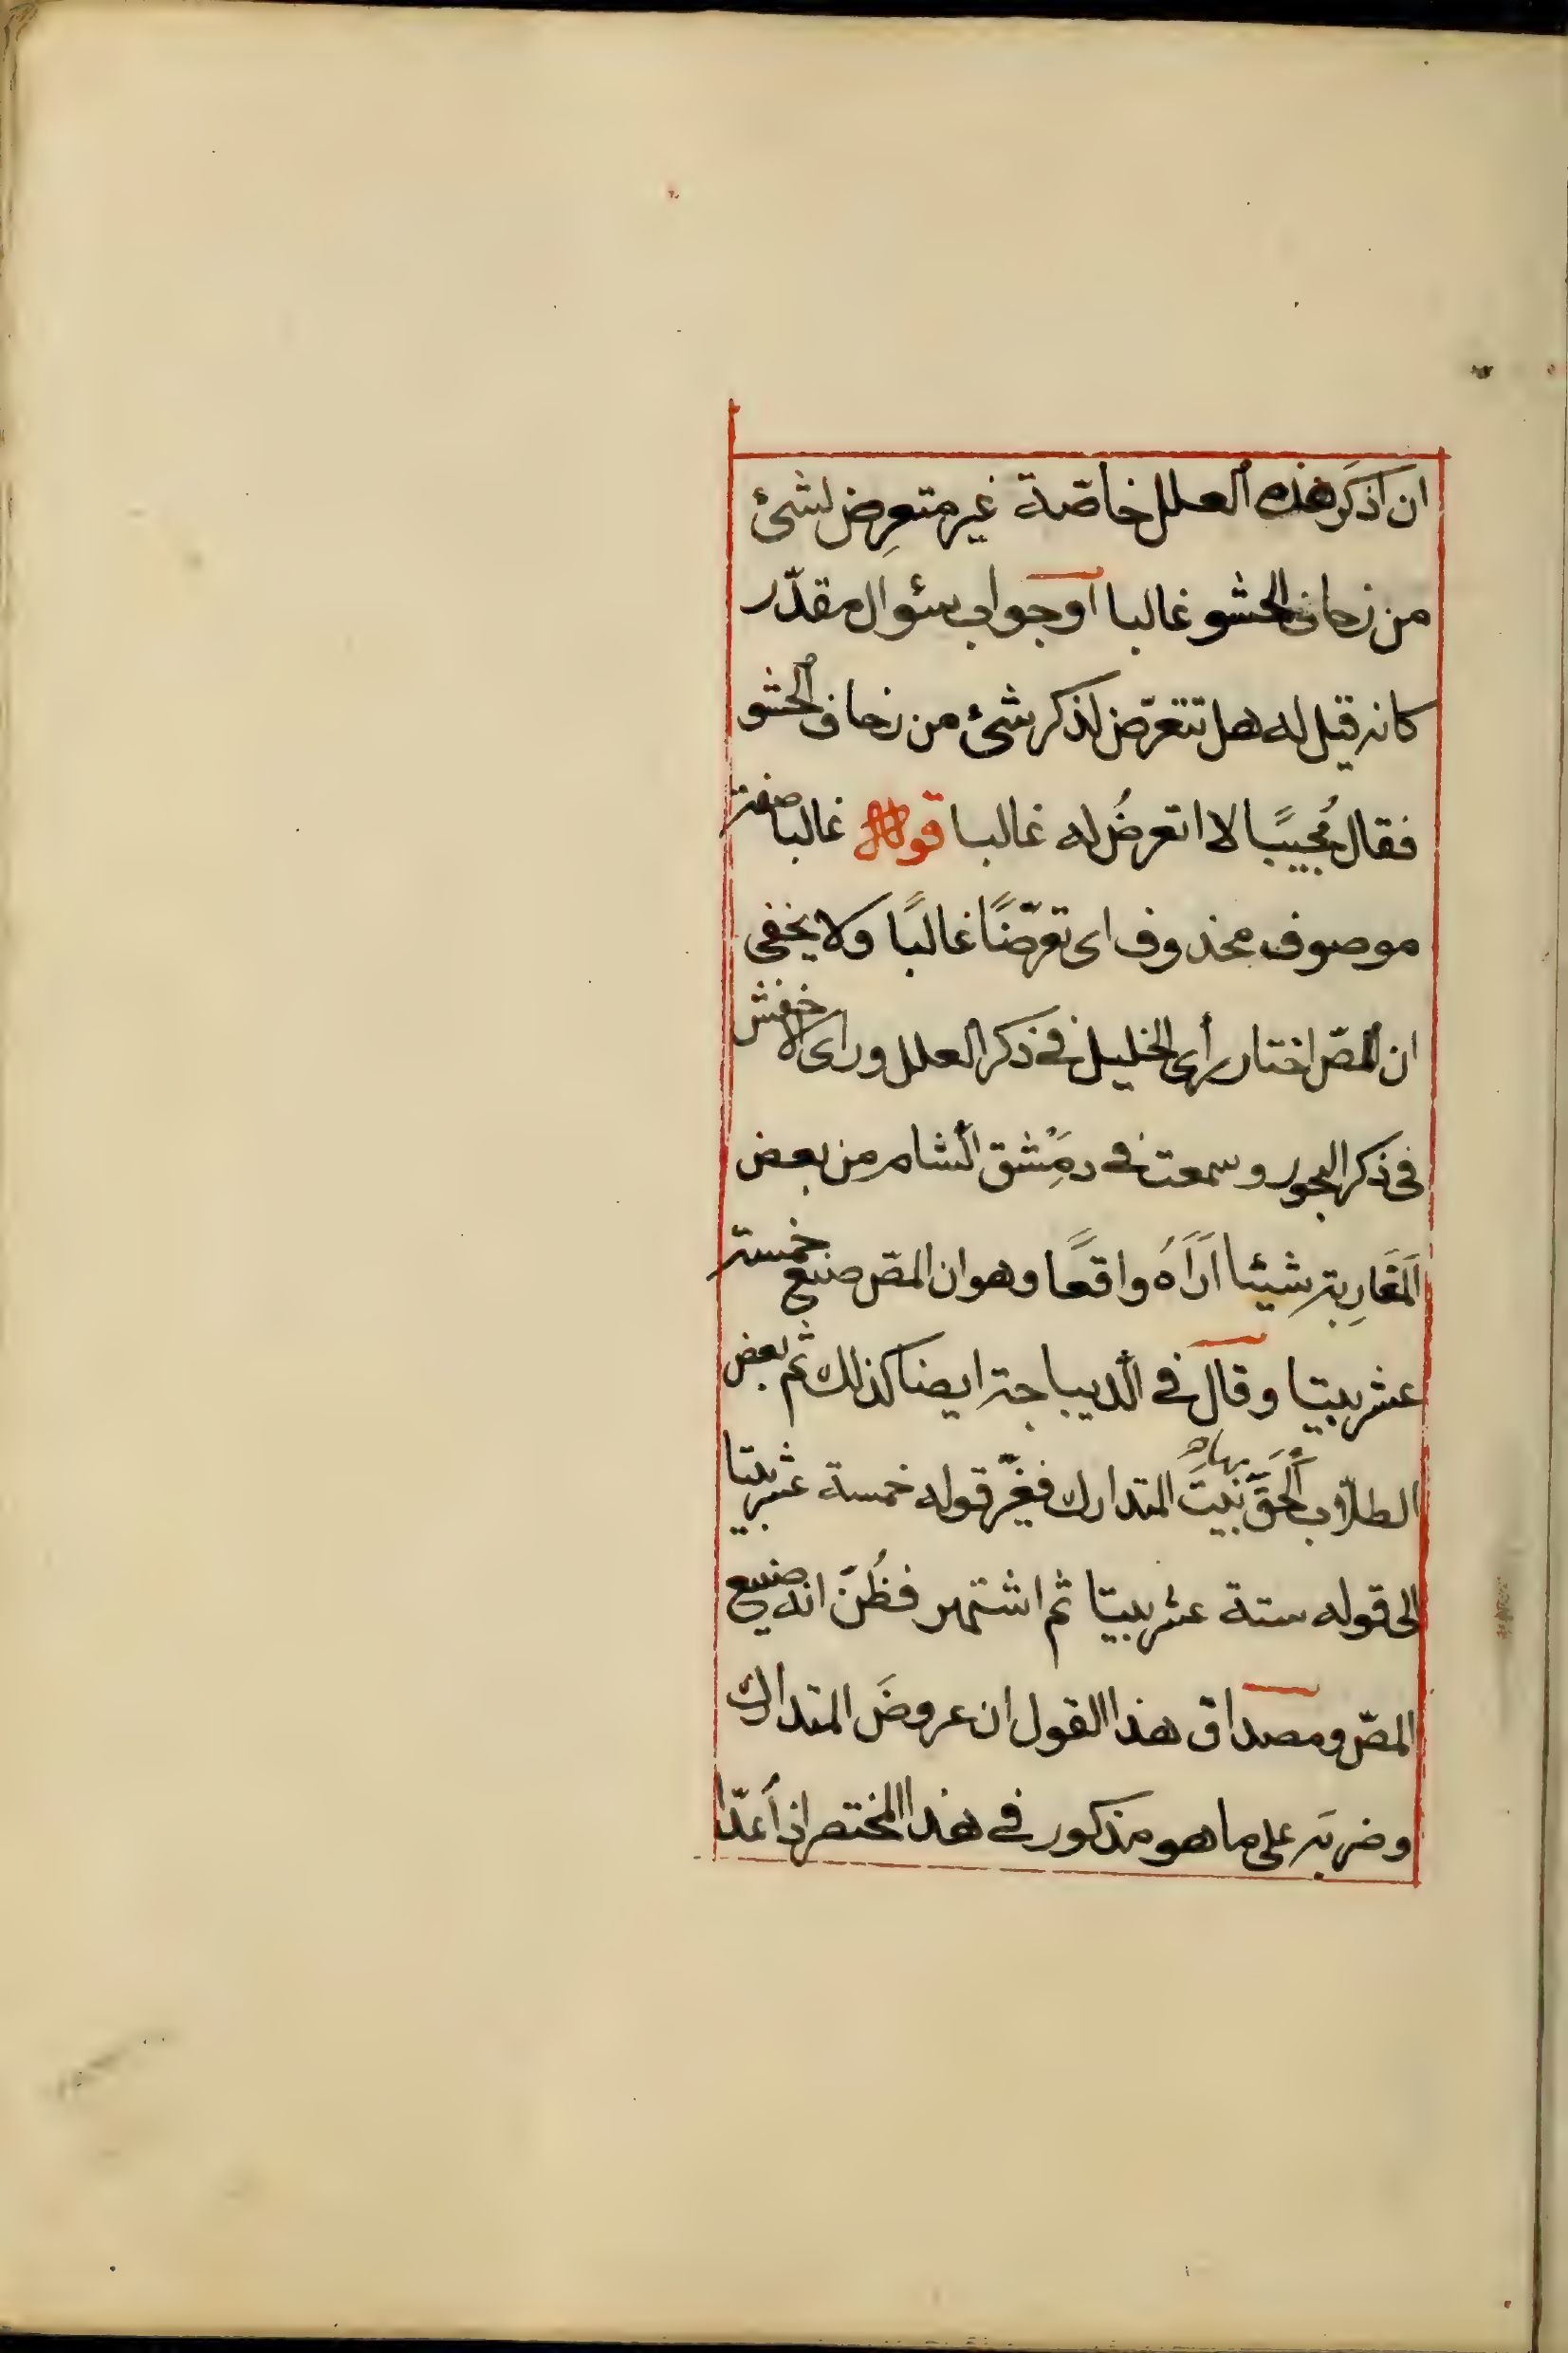 ان اذكَر هٰذه العلل خاصّة غير متعرِض لشئ
من زحاف الحشو غالبا او جواب سئوال مقدّر
كانه قيل له هل تتعرّض لذكر شئ من زحاف الحشو
فقال مُجيبًا لا اتعرضُ له غالبا قوله غالبا صفة
موصوف محذوف اى تعرّضًا غالبًا ولا يخفى
ان المصّ اختار رأى الخليل فى ذكر العلل وراى الاخفش
فى ذكر البحور وسمعت فى دمَِشق الشام من بعض
المَغَارِبة شيئا اَرَاَهُ واقعًا وهو ان المصّ صنع خمسة
عشر بيتا وقال فى الديباجة ايضا كذلك ثم بعض
الطلّاب اَلحَقَ بها بيتَ المتدارك فغيّر قوله خمسة عشر بيتا
الى قوله ستة عشر بيتا ثم اشتهر فظُنَّ انه صنيع
المصّ ومصداق هذا القول ان عروضَ المتدارك
وضربَه على ما هو مذكور فى هذا المختصر اذا عدّا